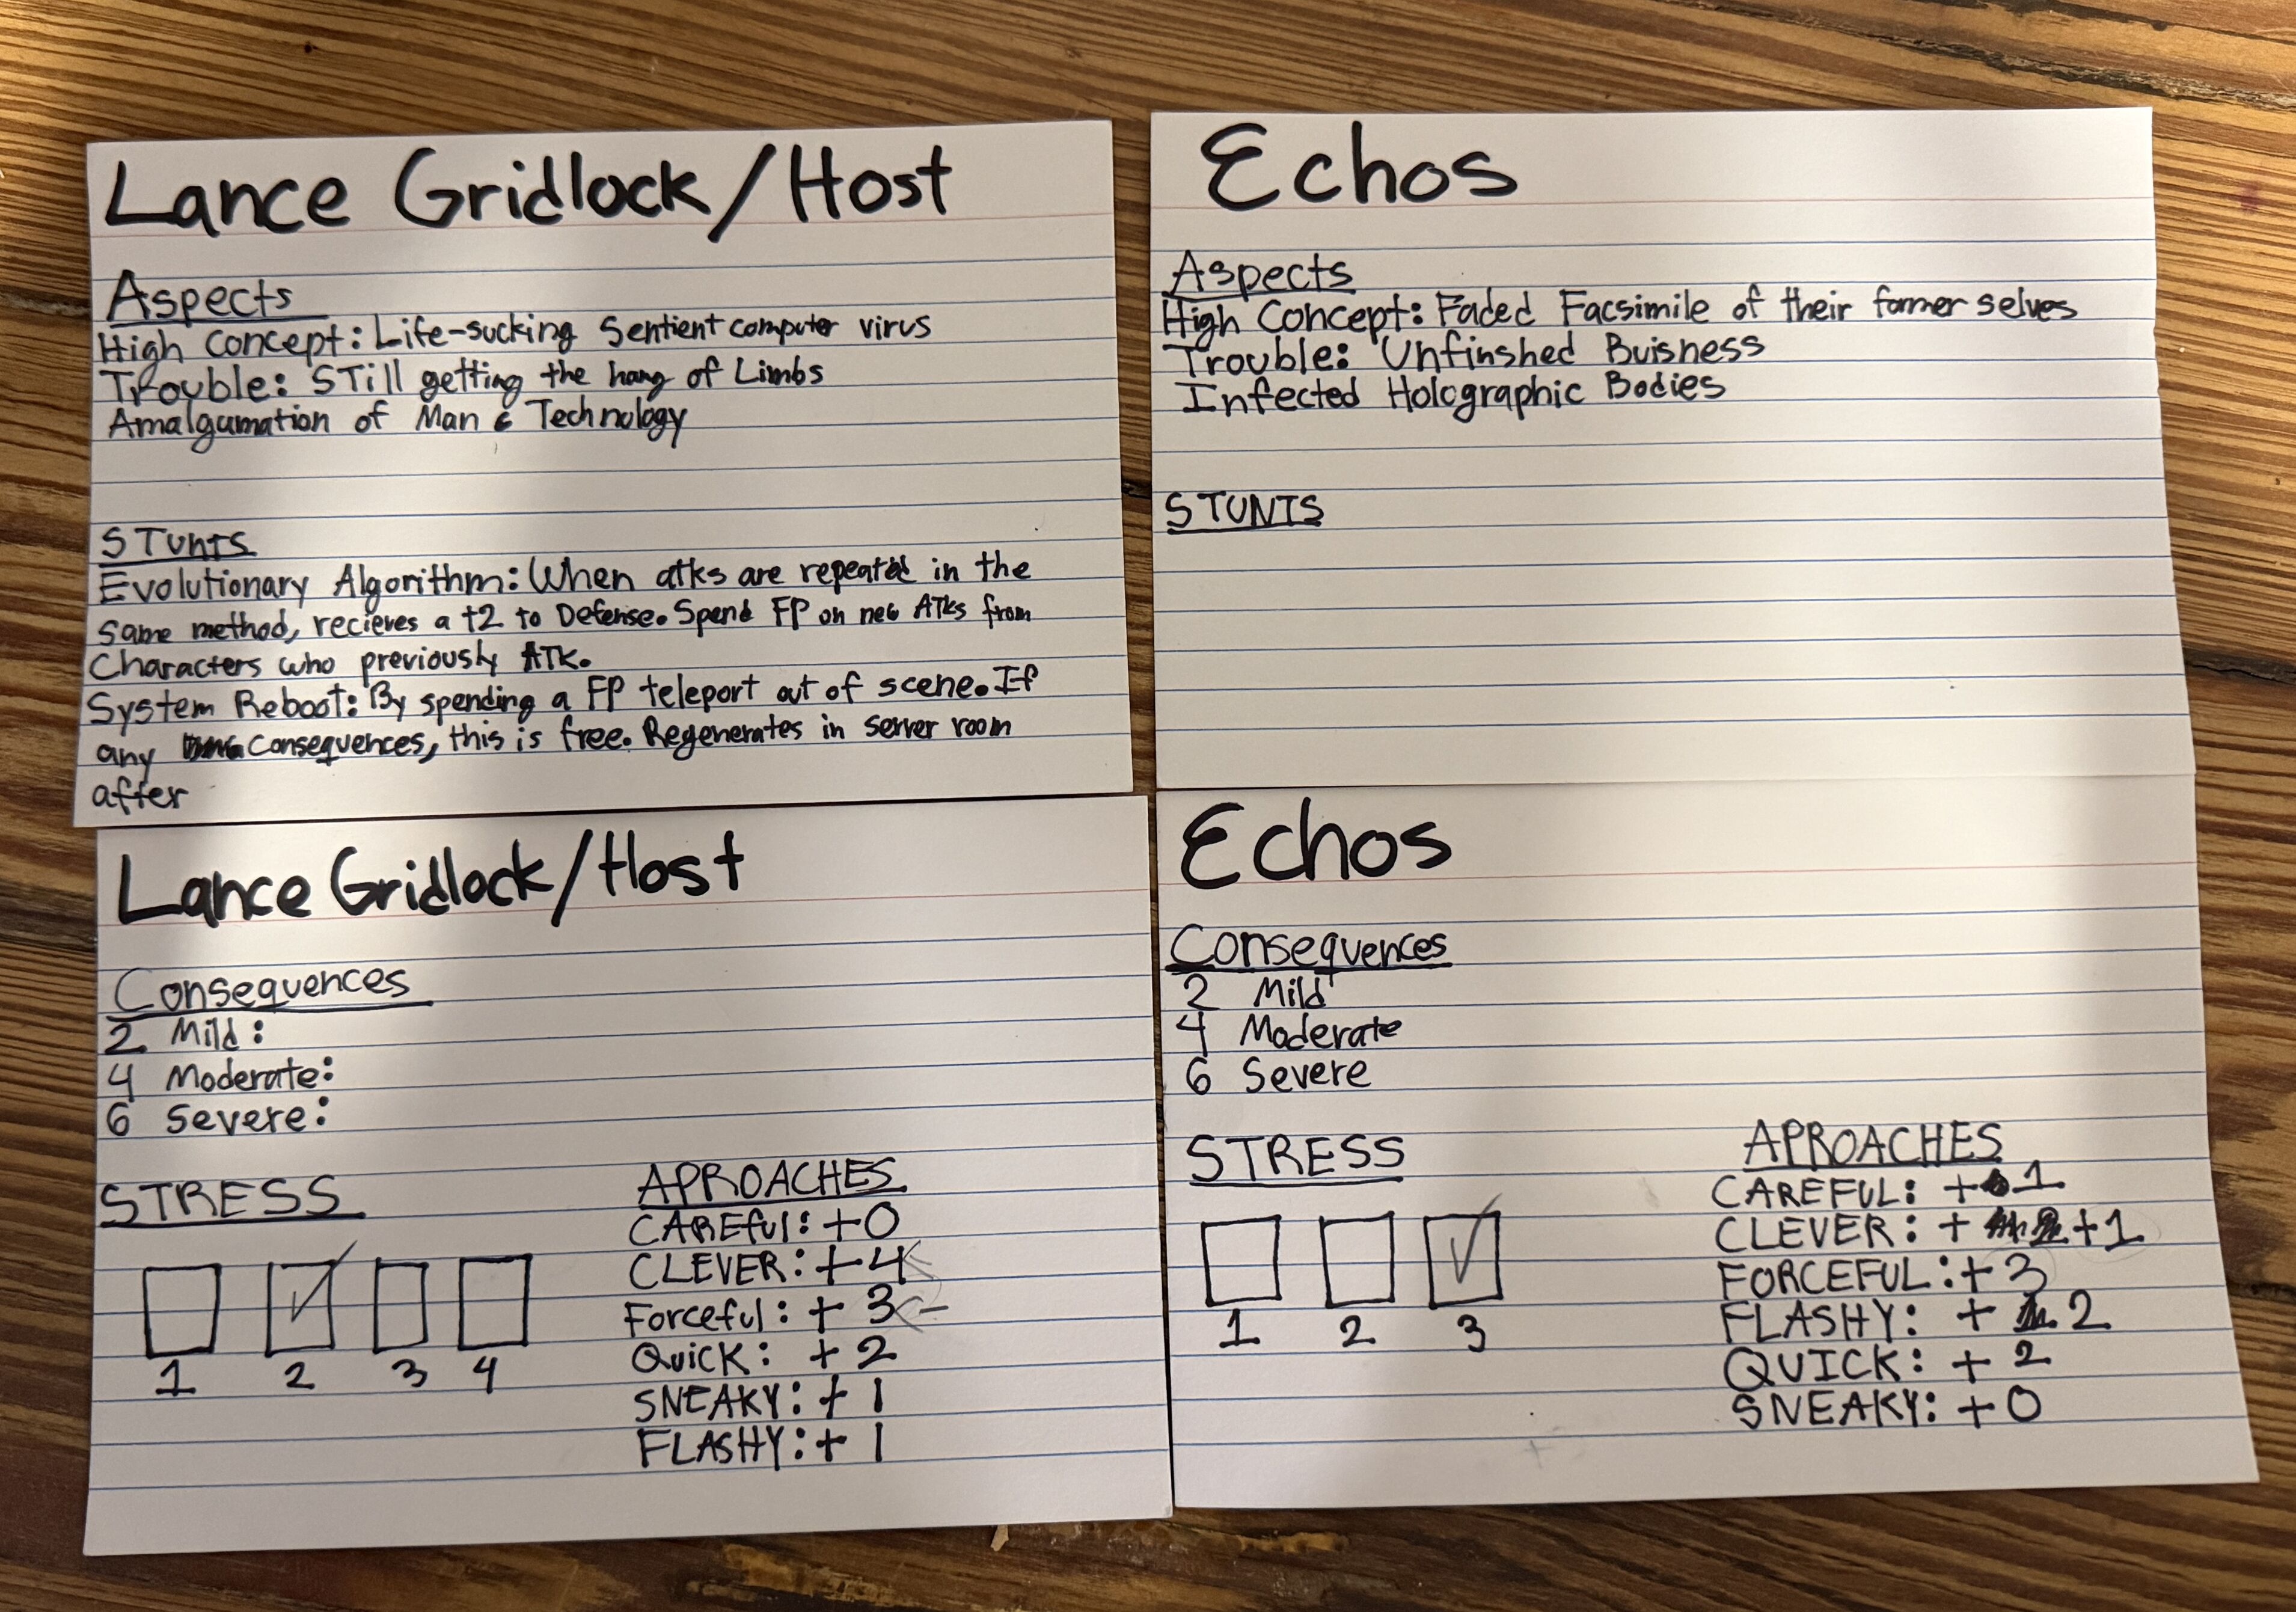 Lance Gridlock/Host
Aspects
High Concept: Life-sucking Sentient computer virus
Trouble: STill getting the hang of Limbs
Amalgamation of Man & Technology
STunts
Evolutionary Algorithm: When atks are repeated in the
same method, recieves a +2 to Defense. Spend FP on new ATKs from
Characters who previously ATK.
System Reboot: By spending a FP teleport out of scene. If
any Consequences, this is free. Regenerates in server room
after
Echos
Aspects
High Concept: Faded Facsimile of their former selves
Trouble: Unfinshed Buisness
Infected Holographic Bodies
STUNTS
Lance Gridlock/Host
Consequences
2 Mild:
4 Moderate:
6 Severe:
STRESS
1 2 3 4
APROACHES
CAREful: +0
CLEVER: +4
Forceful: +3
Quick: +2
SNEAKY: +1
FLASHY: +1
Echos
Consequences
2 Mild
4 Moderate
6 Severe
STRESS
1 2 3
APROACHES
CAREFUL: +1
CLEVER: + +1
FORCEFUL: +3
FLASHY: + 2
QUICK: +2
SNEAKY: +0